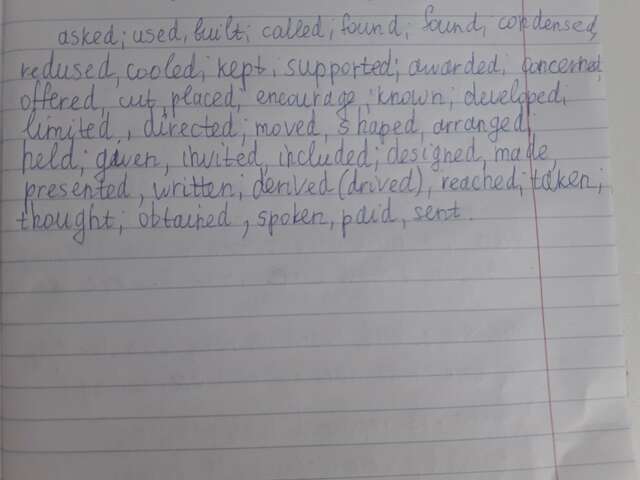 asked; used, built; called; found; found, condensed,
redused, cooled; kept; supported; awarded; concerned
offered, cut, placed, encourage; known; developed;
limited, directed; moved, shaped, arranged;
held; given, invited, included; designed, made,
presented, written; derived (drived), reached; taken;
thought; obtained, spoken, paid, sent.